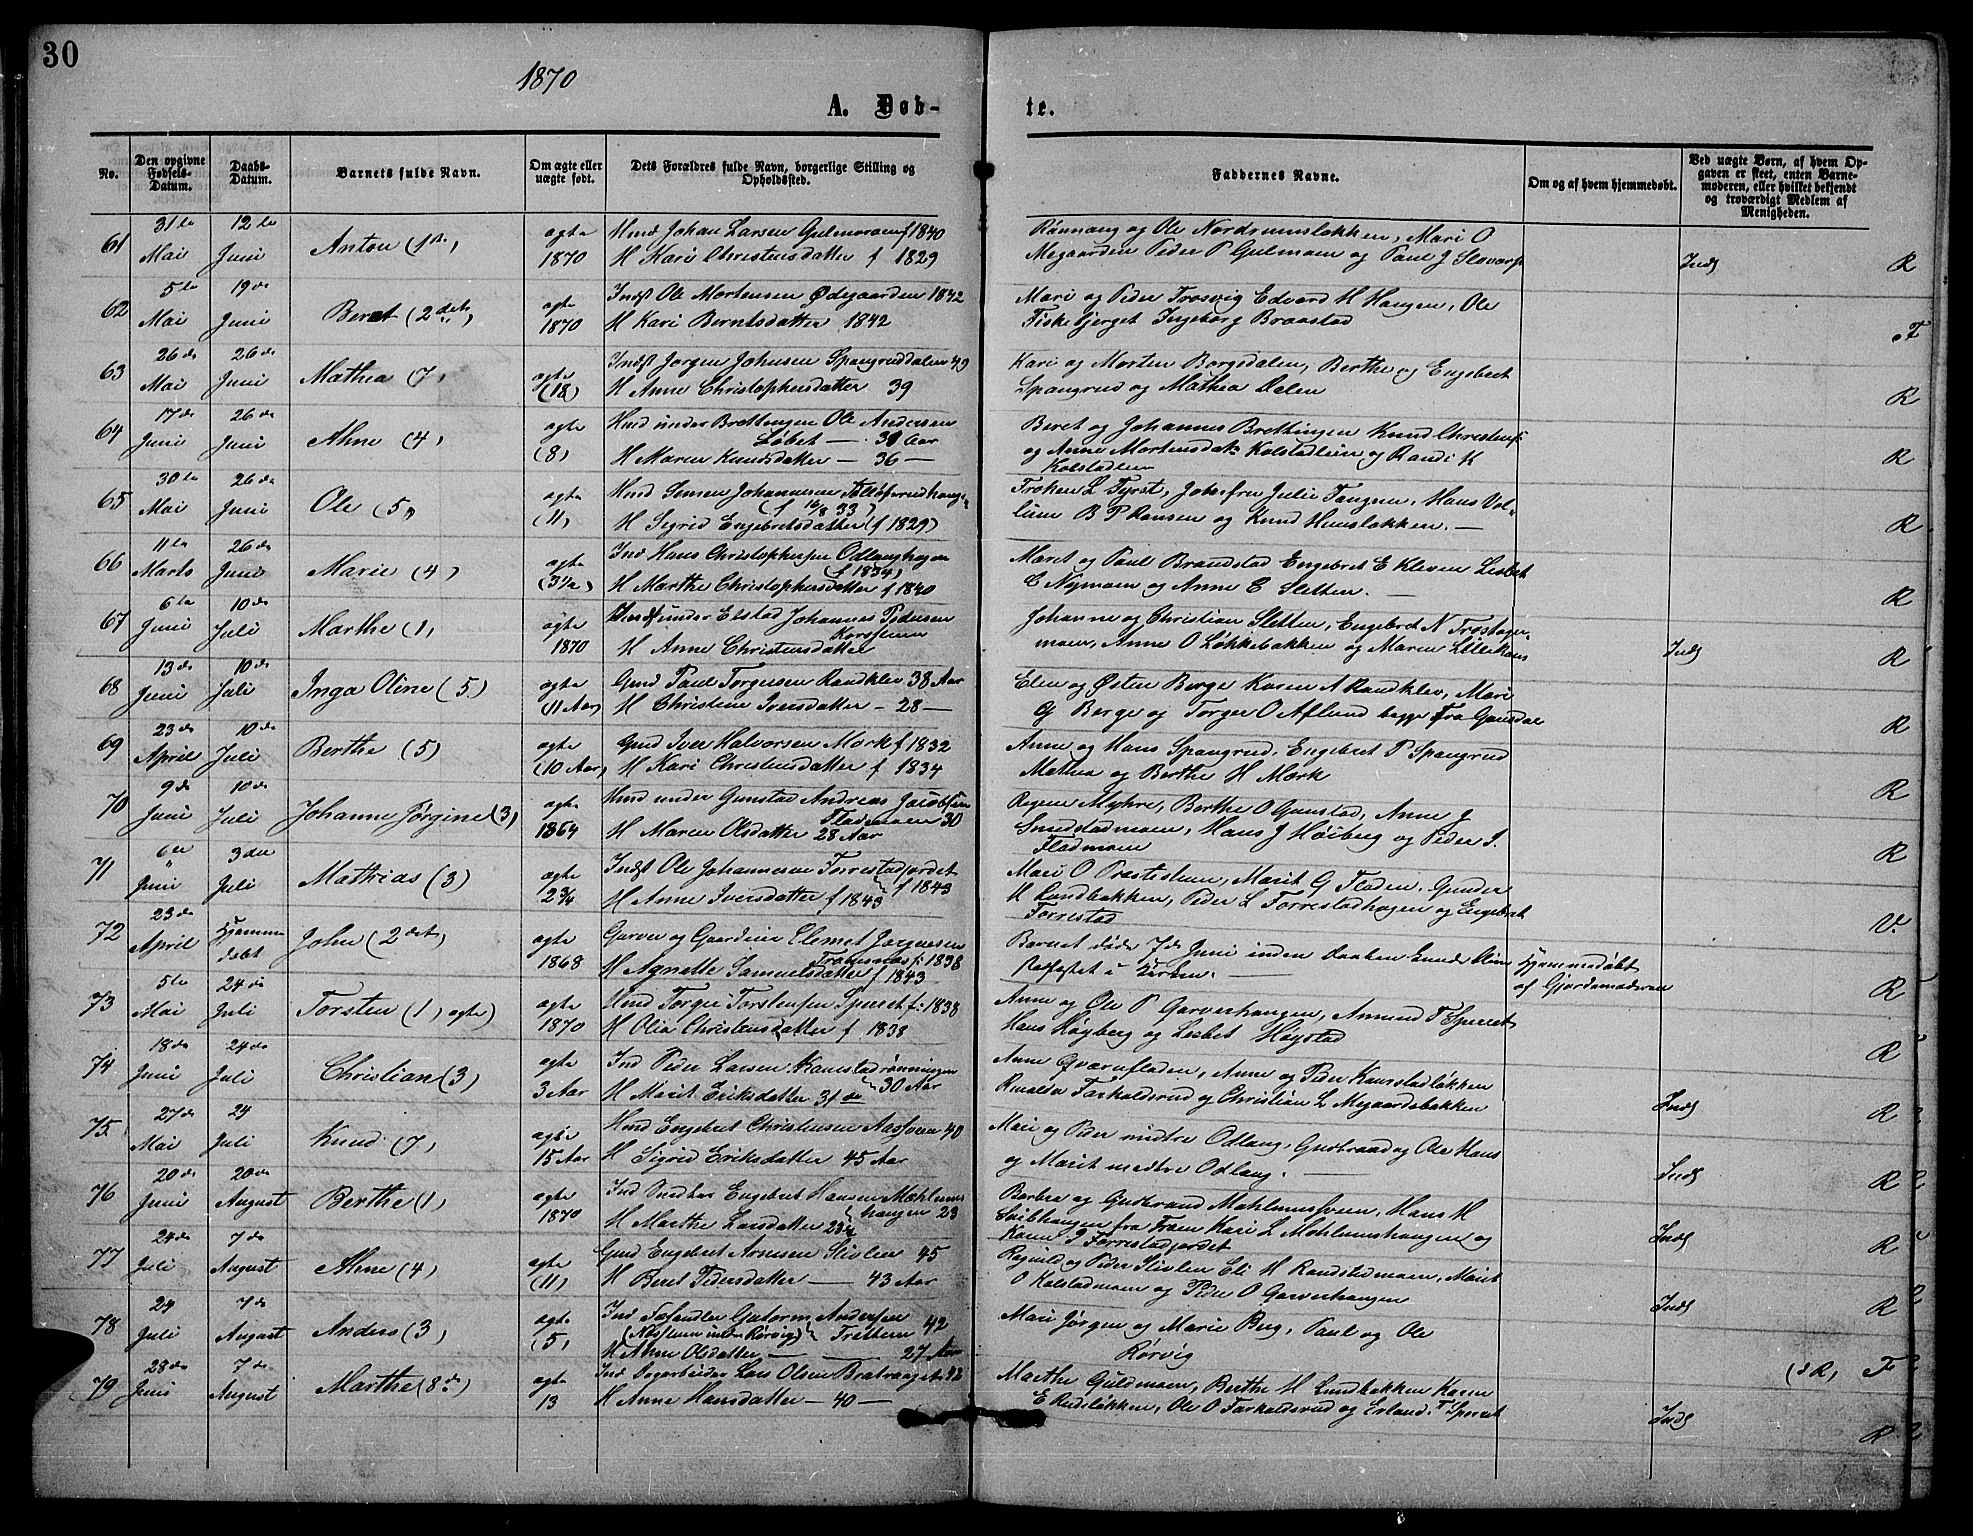 30
1870
A. Døb-
te.
No.
Den opgivne Fødsels-Datum.
Daabs-Datum.
Barnets fulde Navn.
Om ægte eller uægte født.
Dets Forældres fulde Navn, borgerlige Stilling og Opholdssted.
Faddernes Navne.
Om og af hvem hjemmedøbt.
Ved uægte Børn, af hvem Opgaven er skeet, enten Barnemoderen, eller hvilket bekjendt og troværdigt Medlem af Menigheden.
61 31te Mai 12te Juni Anton (1ste) ægte 1870
Hmd Johan Larsen Gulmoen f 1840
H Kari Christensdatter f 1829
Rønnaug og Ole Nordrumsløkken, Mari O
Megaarden Peder P Gulmoen og Paul J
Inds R
62 5te Mai 19de Juni Beret (2det) ægte 1870
Indst Ole Mortensen Ødegaarden 1842
H Kari Berntsdatter 1842
Mari og Peder Trosvig Edvard H Haugen, Ole
Fiskebjerget Ingeborg Braastad
F
63 26de Mai 26de Juni Mathea (7) ægte (18)
Indst Jørgen Johnsen Spangruddalen 49
H Anne Christophersdatter 39
Kari og Morten Borgedalen, Berthe og Engebret
Spangrud og Mathea Dalen
R
64 17de Juni 26de Juni Ahne (4) ægte (8)
Hmd under Brettingen Ole Andersen
Løbet — 30 Aar
H Maren Knudsdatter — 36 —
Beret og Johannes Brettingen Knud Christens:
og Anne Mortensdat: Kolstadlien og Randi K
Kolstadlien
R
65 30te Mai 26de Juni Ole (5) ægte (11)
Hmd Simen Johannesen
(f 16/8 33)
H Sigrid Engebretsdatter (f 1829)
Frøken L Fyrst, Jomfru Julie Tangen, Hans
B P Hansen og Knud Hunsløkken. —
R
66 11te Marts 26de Juni Marie (4) ægte (3½)
Ind Hans Christophersen Odlaughagen
(f 1834)
H Marthe Christophersdatter f 1840
Maret og Paul Brandstad Engebret E Kleven Lisbet
E Nymoen og Anne E Sletten. —
R
67 6te Juni 10de Juli Marthe (1) ægte 1870
under Elstad Johannes Pedersen
H Anne Christensdatter
Johanne og Christian Sletten, Engebret N
moen, Anne O Løkkebakken og Maren
Inds R
68 13de Juni 10de Juli Inga Oline (5) ægte (11 Aar)
Gmd Paul Torgersen Randklev 38 Aar
H Christine Iversdatter - 28 —
Elen og Østen Berge Karen A Randklev, Mari
G Berge og Torger O Aflund begge fra Gausdal
R
69 23de April 10de Juli Berthe (5) ægte (10 Aar)
Gmd Iver Halvorsen Mork f 1832
H Kari Christensdatter f 1834
Anne og Hans Spangrud, Engebret P Spangrud
Mathea og Berthe H Mork
R
70 9de Juni 10de Juli Johanne Jørgine (3) ægte 1864
Hmd under Gunstad Andreas Jacobsen
Fladmoen 30
H Maren Olsdatter 28 Aar
Regine Myhre, Berthe O Gunstad, Anne J
Smedstadmoen, Hans J Høiberg og Peder S.
Fladmoen
R
71 6te Juni 3die Juli Mathias (3) ægte 2¾
Indst Ole Johannesen Forrestadjordet
f 1843
H Anne Iversdatter f 1843
Mari O Præstestuen, Marit G Fladen, Gunder
H Lundbakken, Peder L Forrestadhagen og Engebret
Forrestad
V.
72 23de April Hjemmedøbt John (2det) ægte 1868
Garver og Gaardeier Clemet Jørgensen
f: 1838
H Agnethe Samuelsdatter f 1843
Barnet døde 7de Juni inden Daaben kunde blive
stadfæstet i Kirken. —
Hjemmedøbt
af Gjordemoderen
R
73 5te Mai 24de Juli Torsten (1, ægte) ægte 1870
Hmd Torger Torstensen Sperret f: 1838
H Olia Christensdatter f 1838
Anne og Ole P Garverhaugen, Amund T Sperret
Hans Høyberg og Lisbet Høystad
R
74 18de Juni 24de Juli Christian (3) ægte 3 Aar
Ind Peder Larsen Kanestadrønningen
30 Aar
H Marit Eriksdatter 31 do
Anne Qværnfladen, Anne og Peder Kanestadløkken
Farholdsrud og Christian L Megaardsbakken
Inds R
75 27de Mai 24 Juli Knud (7) ægte 15 Aar
Hmd Engebret Christensen Aassveen 40
H Sigrid Eriksdatter 45 Aar
Mari og Peder nedtre Odlaug, Gudbrand og Ole Hans
og Marit nedtre Odlaug. —
Inds R
76 20de Juni 20de August Berthe (1) ægte 1870
Ind Snedker Engebret Hansen Mæhlums
haugen 23
H Marthe Larsdatter 23¼
Barbra og Gudbrand Mæhlumssveen, Hans M
fra Froen Kari L Mæhlumshaugen og
Karen P Forrestadjordet
Inds R
77 24de Juli 7de August Ahne (4) ægte (11)
Gmd Engebret Arnesen Slivlen 45
H Beret Pedersdatter — 43 Aar
Ragnild og Peder Slivlen Eli H Randstadmoen, Marit
O Kolstadmoen og Peder O Garverhaugen
Inds R
78 24 Juli 7de August Anders (3) ægte (5)
Ind Guttorm Andersen
Fretteren 42
H Anne Olsdatter — 27 Aar
Mari Jørgen og Marie Berg, Paul og Ole
Rørvig
(3 R) F
79 28de Juni 7de August Marthe (8de) ægte 13
Ind Dagarbeider Lars Olsen Bratvanget 42
H Anne Hansdatter — 40 —
Marthe Guldmoen, Berthe M Lundbakken Karen
E Rudsløkken, Ole O Farholdsrud og Erland T Sperret
Inds R